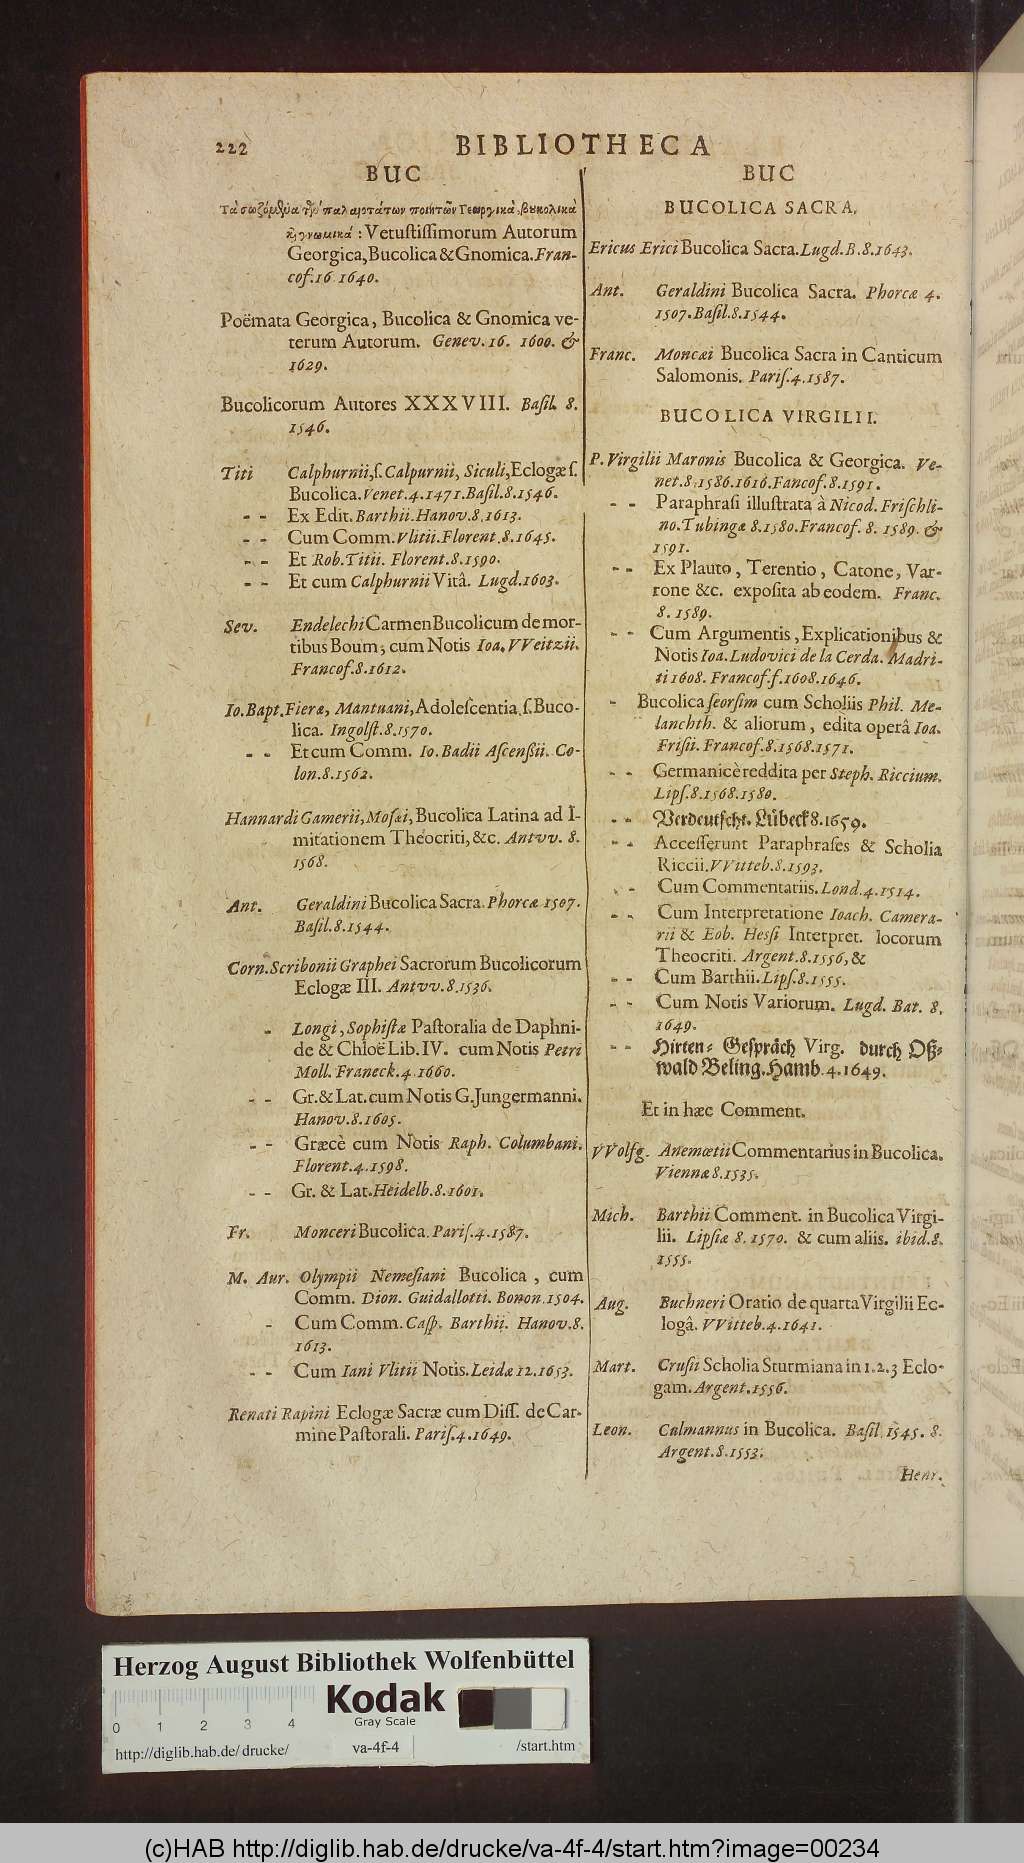 222
BIBLIOTHECA
BUC
Τὰ σωζόμενα τῶν παλαιοτάτων ποιητῶν Γεωργικὰ, βουκολικὰ
καὶ γνωμικά: Vetustissimorum Autorum
Georgica, Bucolica & Gnomica. Fran-
cof. 16 1640.
Poëmata Georgica, Bucolica & Gnomica ve-
terum Autorum. Genev. 16. 1600. &
1629.
Bucolicorum Autores XXXVIII. Basil. 8.
1546.
Titi Calphurnii, s. Calpurnii, Siculi, Eclogæ s.
Bucolica. Venet. 4. 1471. Basil. 8. 1546.
- - Ex Edit. Barthii. Hanov. 8. 1613.
- - Cum Comm. Vlitii. Florent. 8. 1645.
- - Et Rob. Titii. Florent. 8. 1590.
- - Et cum Calphurnii Vitâ. Lugd. 1603.
Sev. Endelechi Carmen Bucolicum de mor-
tibus Boum, cum Notis Ioa. VVeitzii.
Francof. 8. 1612.
Io. Bapt. Fieræ, Mantuani, Adolescentia, s. Buco-
lica. Ingolst. 8. 1570.
- - Et cum Comm. Io. Badii Ascenßii. Co-
lon. 8. 1562.
Hannardi Gamerii, Mosæi, Bucolica Latina ad I-
mitationem Theocriti, &c. Antvv. 8.
1568.
Ant. Geraldini Bucolica Sacra. Phorcæ 1507.
Basil. 8. 1544.
Corn. Scribonii Graphei Sacrorum Bucolicorum
Eclogæ III. Antvv. 8. 1536.
- Longi, Sophistæ Pastoralia de Daphni-
de & Chloë Lib. IV. cum Notis Petri
Moll. Franeck. 4. 1660.
- - Gr. & Lat. cum Notis G. Jungermanni.
Hanov. 8. 1605.
- - Græcè cum Notis Raph. Columbani.
Florent. 4. 1598.
- - Gr. & Lat. Heidelb. 8. 1601.
Fr. Monceri Bucolica. Paris. 4. 1587.
M. Aur. Olympii Nemesiani Bucolica, cum
Comm. Dion. Guidallotti. Bonon. 1504.
- Cum Comm. Casp. Barthii. Hanov. 8.
1613.
- - Cum Iani Vlitii Notis. Leidæ 12. 1653.
Renati Rapini Eclogæ Sacræ cum Diss. de Car-
mine Pastorali. Paris. 4. 1649.
BUC
BUCOLICA SACRA.
Ericus Erici Bucolica Sacra. Lugd. B. 8. 1643.
Ant. Geraldini Bucolica Sacra. Phorcæ 4.
1507. Basil. 8. 1544.
Franc. Moncæi Bucolica Sacra in Canticum
Salomonis. Paris. 4. 1587.
BUCOLICA VIRGILII.
P. Virgilii Maronis Bucolica & Georgica. Ve-
net. 8. 1586. 1616. Fancof. 8. 1591.
- - Paraphrasi illustrata à Nicod. Frischli-
no. Tubingæ 8. 1580. Francof. 8. 1589. &
1591.
- - Ex Plauto, Terentio, Catone, Var-
rone &c. exposita ab eodem. Franc.
8. 1589.
- - Cum Argumentis, Explicationibus &
Notis Ioa. Ludovici de la Cerda. Madri-
ti 1608. Francof. f. 1608. 1646.
- Bucolica seorsim cum Scholiis Phil. Me-
lanchth. & aliorum, edita operâ Ioa.
Frisii. Francof. 8. 1568. 1571.
- - Germanicè reddita per Steph. Riccium.
Lips. 8. 1568. 1580.
- - Verdeutscht. Lübeck 8. 1659.
- - Accesserunt Paraphrases & Scholia
Riccii. VVitteb. 8. 1593.
- - Cum Commentariis. Lond. 4. 1514.
- - Cum Interpretatione Ioach. Camera-
rii & Eob. Hessi Interpret. locorum
Theocriti. Argent. 8. 1556, &
- - Cum Barthii. Lips. 8. 1555.
- - Cum Notis Variorum. Lugd. Bat. 8.
1649.
- - Hirten-Gespräch Virg. durch Oß-
wald Beling. Hamb. 4. 1649.
Et in hæc Comment.
VVolfg. Anemœtii Commentarius in Bucolica.
Viennæ 8. 1535.
Mich. Barthii Comment. in Bucolica Virgi-
lii. Lipsiæ 8. 1570. & cum aliis. ibid. 8.
1555.
Aug. Buchneri Oratio de quarta Virgilii Ec-
logâ. VVitteb. 4. 1641.
Mart. Crusii Scholia Sturmiana in 1. 2. 3 Eclo-
gam. Argent. 1556.
Leon. Culmannus in Bucolica. Basil. 1545. 8.
Argent. 8. 1553.
Henr.
Herzog August Bibliothek Wolfenbüttel
0 1 2 3 4
Kodak
Gray Scale
http://diglib.hab.de/drucke/ va-4f-4 /start.htm
(c)HAB http://diglib.hab.de/drucke/va-4f-4/start.htm?image=00234